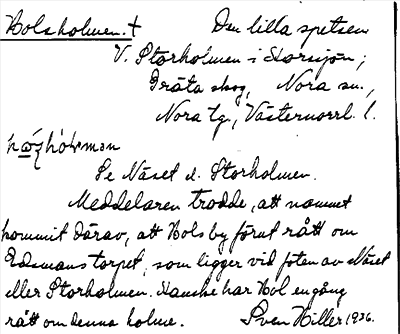 Holsholmen. + Den lilla spetsen
V. Storholmen i Storsjön,
Gräta skog, Nora sn.,
Nora tg., Västernorrl. l.
Se Näset el. Storholmen.
Meddelaren trodde, att namnet
kommit därav, att Hols by förut rått om
Edsmanstorpet, som ligger vid foten av Näset
eller Storholmen. Kanske har Hol en gång
rått om denna holme. Sven Hiller 1936.